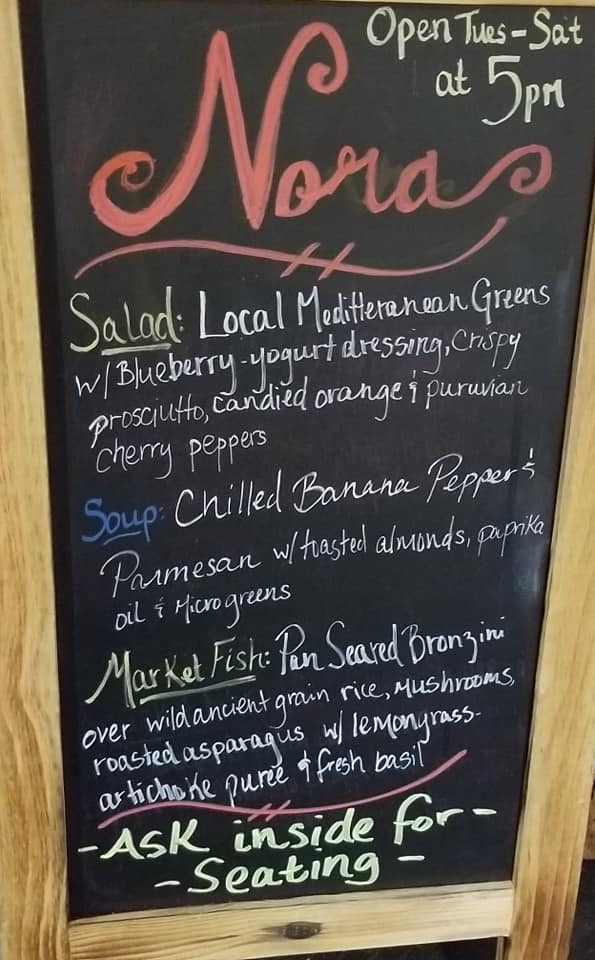 Open Tues-Sat
at 5pm
Nora
Salad: Local Mediteranean Greens
w/ Blueberry-yogurt dressing, Crispy
prosciutto, candied orange & puruvian
cherry peppers
Soup: Chilled Banana Pepper &
Parmesan w/ toasted almonds, paprika
oil & Microgreens
Market Fish: Pan Seared Bronzini
over wild ancient grain rice, Mushrooms,
roasted asparagus w/ lemongrass-
artichoke purée & fresh basil
- Ask inside for -
- Seating -